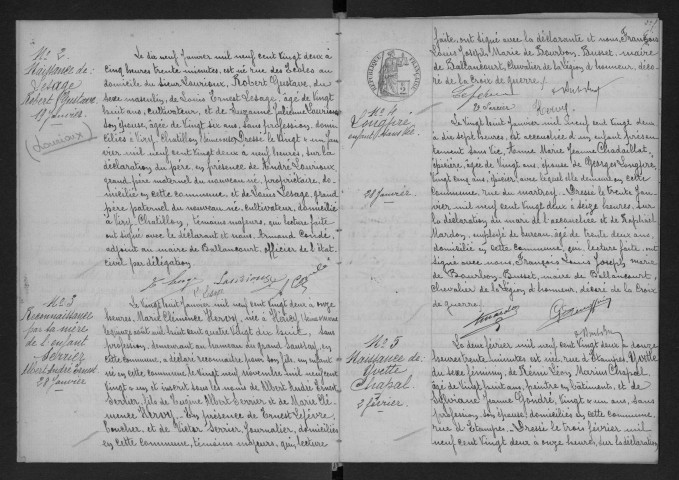 N° 2
Naissance de:
Lesage
Robert Gustave
19 janvier
(Louviaux)
Le dix neuf janvier mil neuf cent vingt deux à
cinq heures trente minutes, est né rue des Écoles au
domicile du sieur Robert Gustave, du
sexe masculin, de Louis Ernest Lesage, âgé de vingt
huit ans, cultivateur, et de Suzanne
son épouse, âgée de vingt six ans, sans profession, domi-
ciliés à Viry Chatillon. Dressé le vingt
janvier mil neuf cent vingt deux à heures, sur la
déclaration du père, en présence de André
grand père maternel du nouveau né, propriétaire, do-
micilié en cette commune, et de Louis Lesage, grand
père paternel du nouveau né, cultivateur, domicilié
à Viry Chatillon, témoins majeurs, qui lecture faite
ont signé avec le déclarant et nous, Armand Condé,
adjoint au maire de Ballancourt, officier de l'état
civil par délégation.
N° 3
Reconnaissance
par la mère
de l'enfant
Albert André Ernest
28 janvier
Le vingt huit janvier mil neuf cent vingt deux à onze
heures Marie Clémence Hervy, née à
le vingt août mil huit cent quatre vingt dix huit, sans
profession, demeurant au hameau du grand Saussay, en
cette commune, a déclaré reconnaître pour son fils, un enfant né
en cette commune le vingt neuf novembre mil neuf cent
vingt un et inscrit sous les noms de Albert André Ernest
fils de Eugène Albert et de Marie Clé-
mence Hervy. En présence de Ernest Lefèvre,
et de Victor journalier, domiciliés
en cette commune, témoins majeurs, qui, lecture
faite, ont signé avec la déclarante et nous, François
Louis Joseph Marie de Bourbon Busset, maire
de Ballancourt, Chevalier de la Légion d'honneur, décoré
de la Croix de guerre.
RÉPUBLIQUE FRANÇAISE
N° 4
enfant
28 janvier
Le vingt huit janvier mil neuf cent vingt deux
à dix sept heures, est accouchée d'un enfant présen-
tement sans vie, Anne Marie Jeanne Chadaillat,
épicière, âgée de vingt ans, épouse de Georges
vingt cinq ans, épicier, avec lequel elle demeure, en cette
commune, rue du martroy. Dressé le trente jan-
vier mil neuf cent vingt deux à seize heures, sur
la déclaration du mari de l'accouchée et de Raphaël
Mardon, employé de bureau, âgé de trente deux ans,
domicilié en cette commune, qui, lecture faite, ont
signé avec nous, François Louis Joseph Marie
de Bourbon Busset, maire de Ballancourt,
Chevalier de la Légion d'honneur, décoré de la Croix
de guerre.
N° 5
Naissance de:
Yvette
Chapal
2 février
Le deux février mil neuf cent vingt deux à douze
heures trente minutes est née rue d'Étampes, Yvette
du sexe féminin, de Rémi Léon Marin Chapal,
âgé de vingt huit ans, peintre en bâtiments, et de
Jeanne Gondré, vingt un ans, sans
profession, son épouse, domiciliés en cette commune,
rue d'Étampes. Dressé le trois février mil
neuf cent vingt deux à onze heures, sur la déclaration